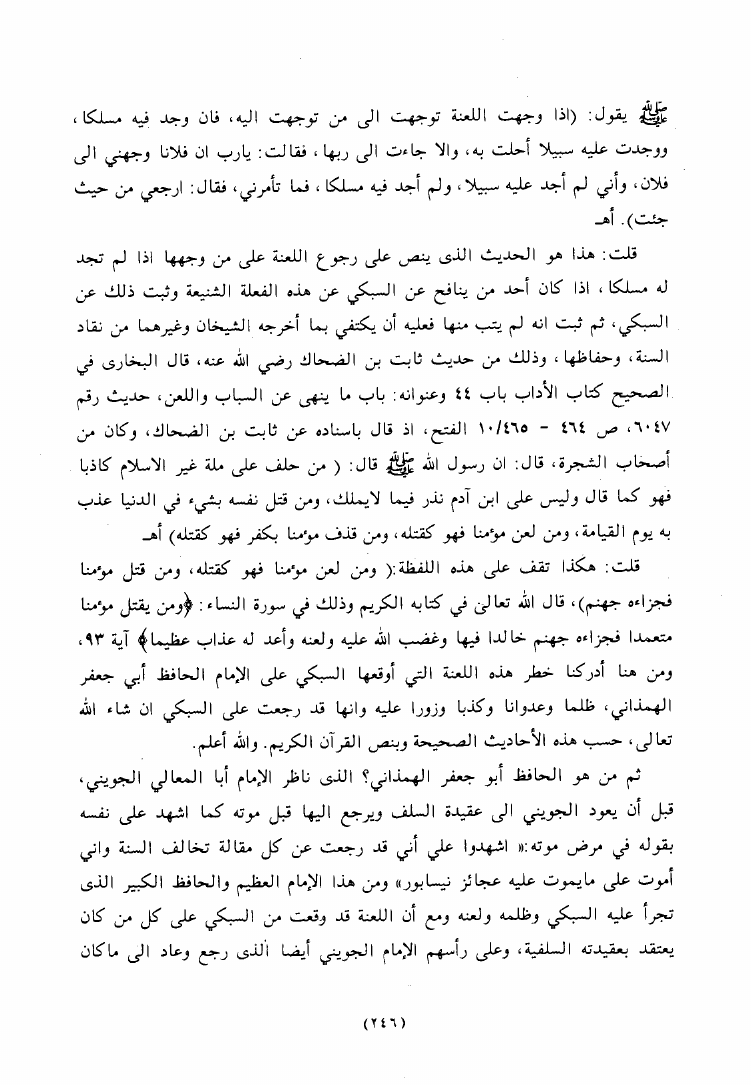 ﷺ يقول: (اذا وجهت اللعنة توجهت الى من توجهت اليه، فان وجد فيه مسلكا،
ووجدت عليه سبيلا أحلت به، والا جاءت الى ربها، فقالت: يارب ان فلانا وجهني الى
فلان، وأني لم أجد عليه سبيلا، ولم أجد فيه مسلكا، فما تأمرني، فقال: ارجعي من حيث
جئت). أهـ
قلت: هذا هو الحديث الذى ينص على رجوع اللعنة على من وجهها اذا لم تجد
له مسلكا، اذا كان أحد من ينافح عن السبكي عن هذه الفعلة الشنيعة وثبت ذلك عن
السبكي، ثم ثبت انه لم يتب منها فعليه أن يكتفي بما أخرجه الشيخان وغيرهما من نقاد
السنة، وحفاظها، وذلك من حديث ثابت بن الضحاك رضي الله عنه، قال البخارى في
الصحيح كتاب الأداب باب ٤٤ وعنوانه: باب ما ينهى عن السباب واللعن، حديث رقم
٦٠٤٧، ص ٤٦٤ - ١٠/٤٦٥ الفتح، اذ قال باسناده عن ثابت بن الضحاك، وكان من
أصحاب الشجرة، قال: ان رسول الله ﷺ قال: ( من حلف على ملة غير الاسلام كاذبا
فهو كما قال وليس على ابن آدم نذر فيما لايملك، ومن قتل نفسه بشيء في الدنيا عذب
به يوم القيامة، ومن لعن مؤمنا فهو كقتله، ومن قذف مؤمنا بكفر فهو كقتله) أهـ
قلت: هكذا تقف على هذه اللفظة:( ومن لعن مؤمنا فهو كقتله، ومن قتل مؤمنا
فجزاءه جهنم)، قال الله تعالى في كتابه الكريم وذلك في سورة النساء: ﴿ومن يقتل مؤمنا
متعمدا فجزاءه جهنم خالدا فيها وغضب الله عليه ولعنه وأعد له عذاب عظيما﴾ آية ٩٣،
ومن هنا أدركنا خطر هذه اللعنة التي أوقعها السبكي على الإمام الحافظ أبي جعفر
الهمذاني، ظلما وعدوانا وكذبا وزورا عليه وانها قد رجعت على السبكي ان شاء الله
تعالى، حسب هذه الأحاديث الصحيحة وبنص القرآن الكريم. والله أعلم.
ثم من هو الحافظ أبو جعفر الهمذاني؟ الذى ناظر الإمام أبا المعالي الجويني،
قبل أن يعود الجويني الى عقيدة السلف ويرجع اليها قبل موته كما اشهد على نفسه
بقوله في مرض موته:« اشهدوا علي أني قد رجعت عن كل مقالة تخالف السنة واني
أموت على مايموت عليه عجائز نيسابور» ومن هذا الإمام العظيم والحافظ الكبير الذى
تجرأ عليه السبكي وظلمه ولعنه ومع أن اللعنة قد وقعت من السبكي على كل من كان
يعتقد بعقيدته السلفية، وعلى رأسهم الإمام الجويني أيضا الذى رجع وعاد الى ماكان
(٢٤٦)